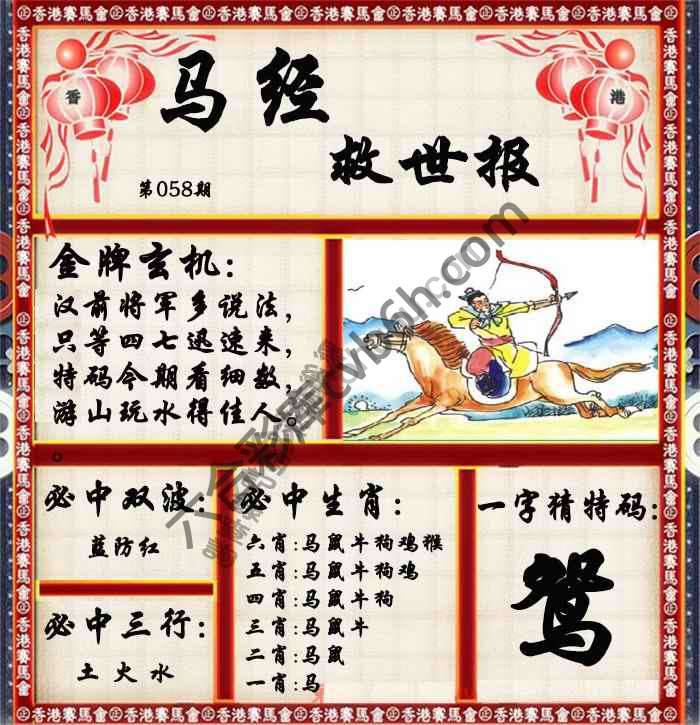 香港賽馬會
香
港
马经
救世报
第058期
金牌玄机:
汉前将军多说法,
只等四七迅速来,
特码今期看细数,
游山玩水得佳人。
必中双波:
蓝防红
必中三行:
土火水
必中生肖:
六肖:马鼠牛狗鸡猴
五肖:马鼠牛狗鸡
四肖:马鼠牛狗
三肖:马鼠牛
二肖:马鼠
一肖:马
一字猜特码:
鸳
六合彩库cvb6h.com